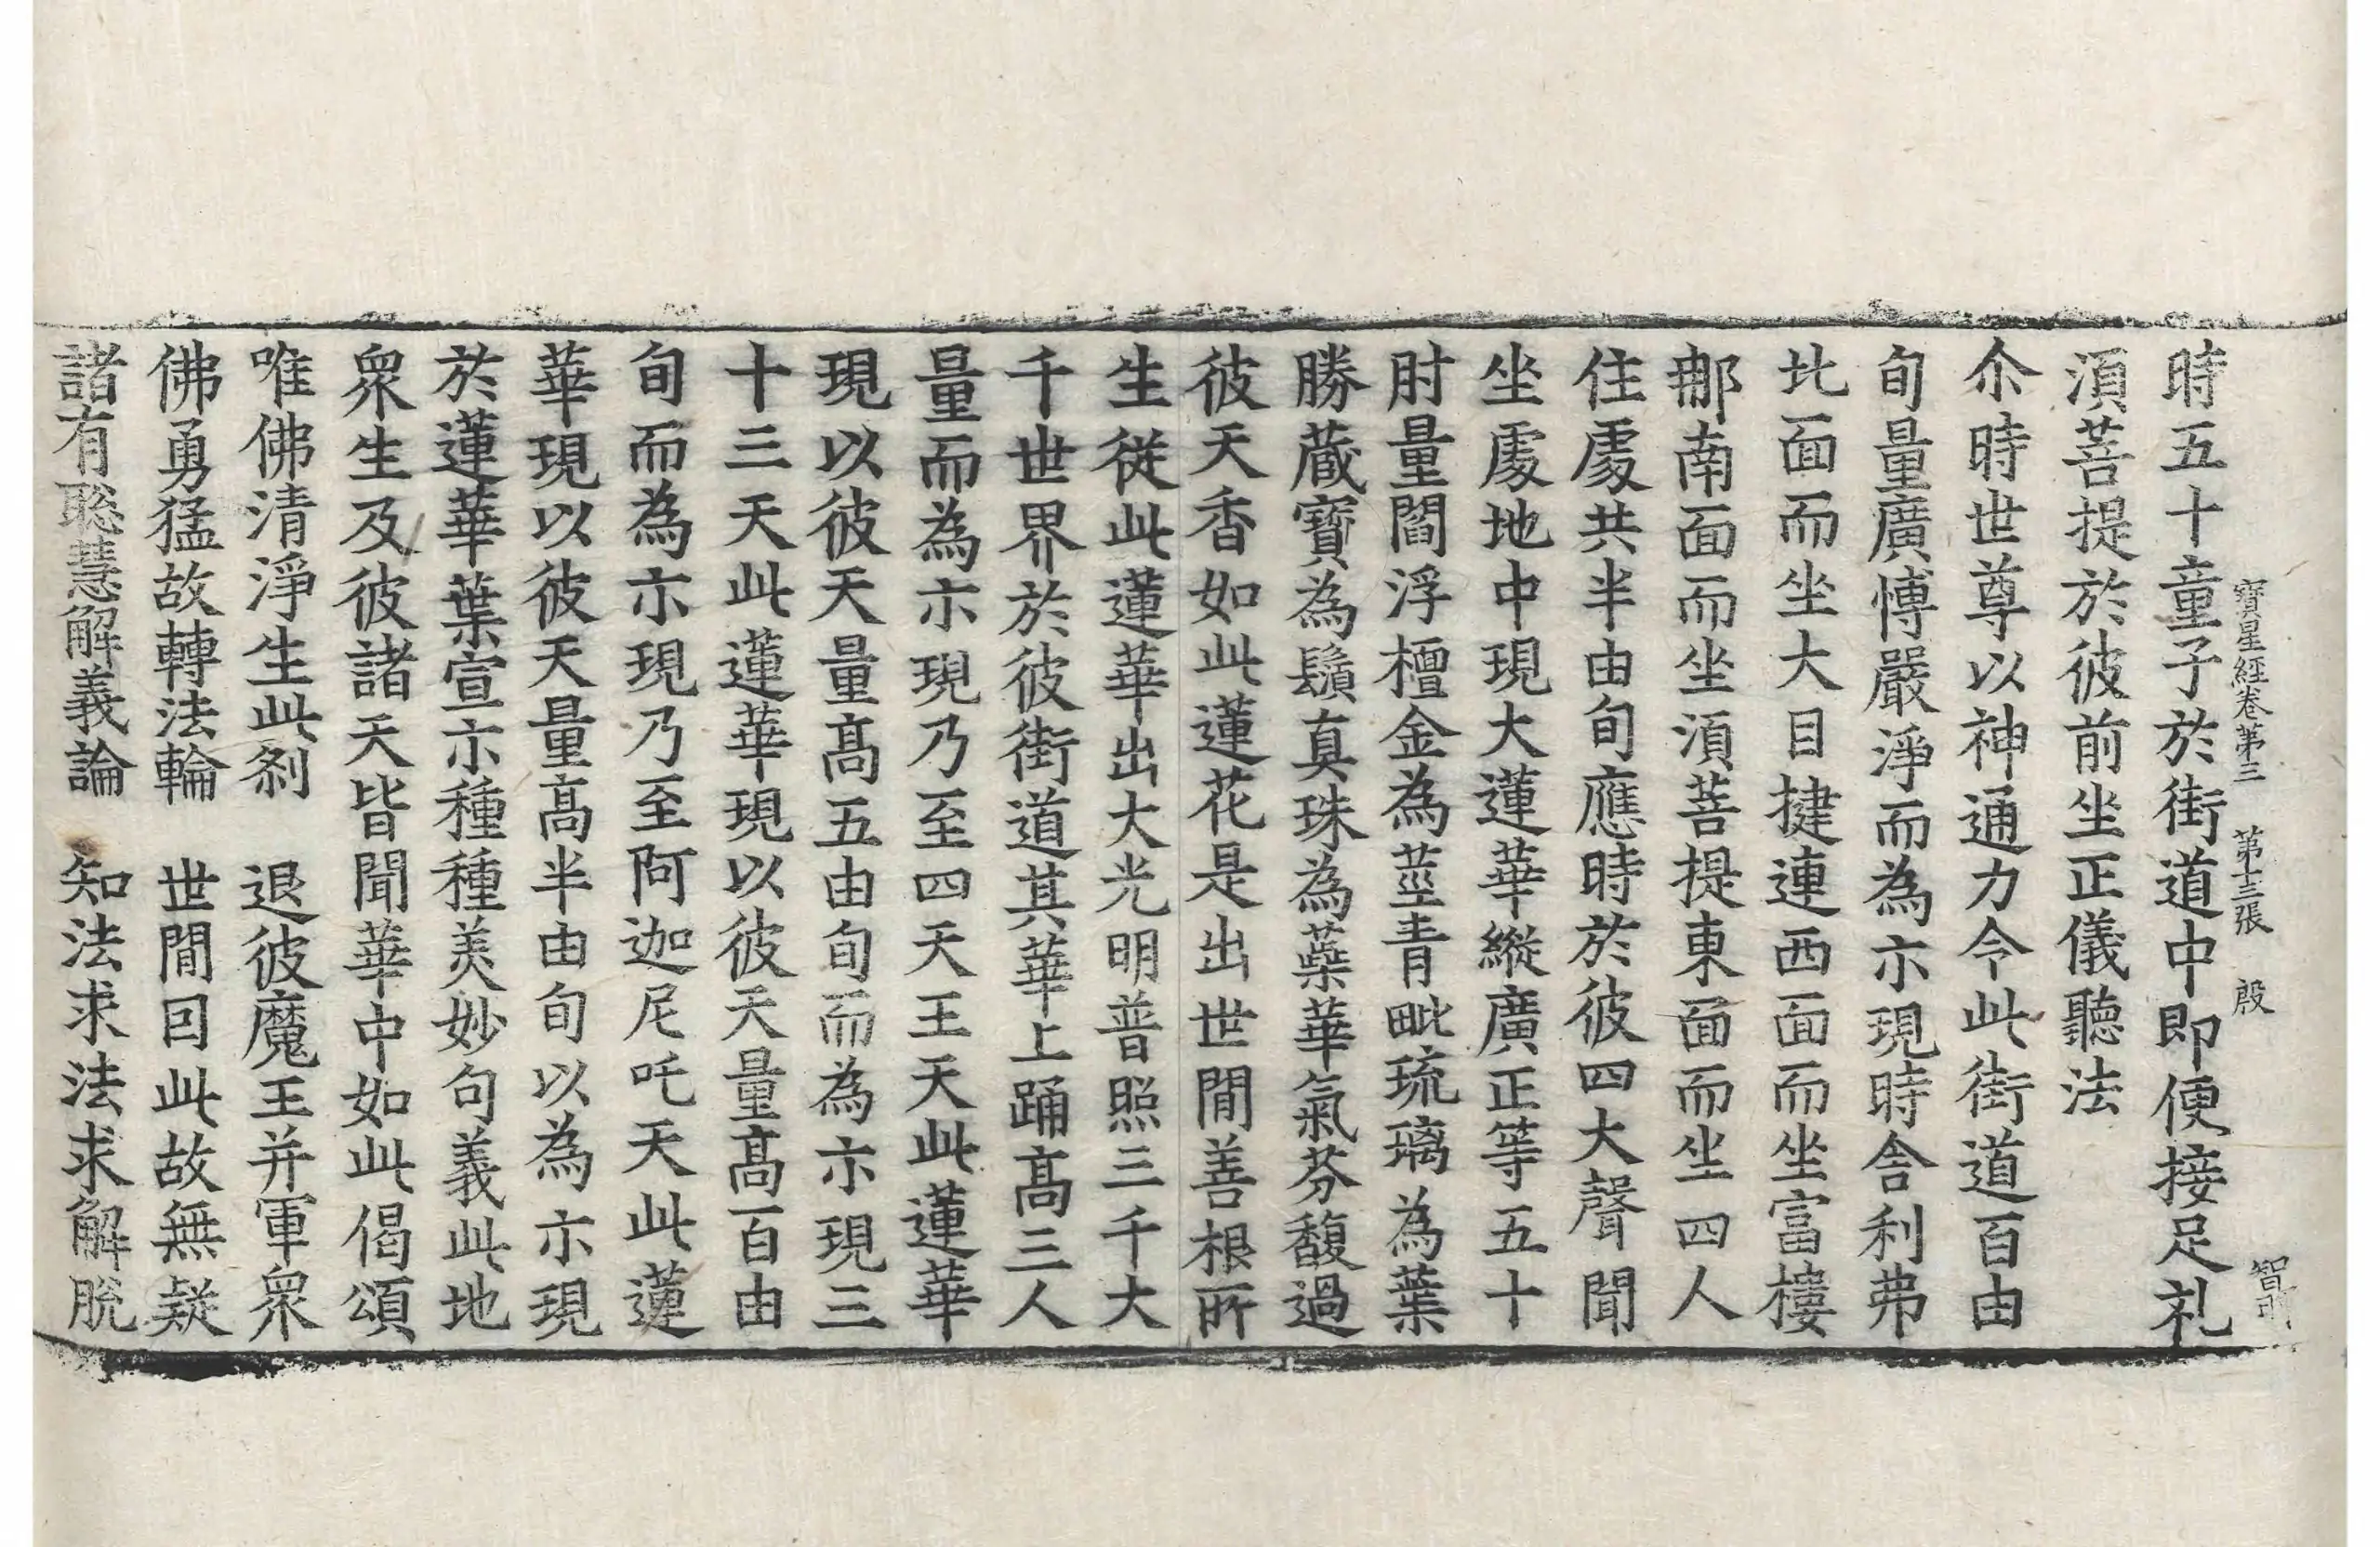 寶星經卷第三　第十三張　殷
智
時五十童子於街道中即便接足礼
湏菩提於彼前坐正儀聽法
尒時世尊以神通力令此街道百由
旬量廣博嚴淨而為亦現時舍利弗
北面而坐大目揵連西面而坐富樓
那南面而坐湏菩提東面而坐四人
住處共半由旬應時於彼四大聲聞
坐處地中現大蓮華縱廣正等五十
肘量閻浮檀金為莖青毗琉璃為葉
勝蔵寶為鬚真珠為蘂華氣芬馥過
彼天香如此蓮花是出世間善根所
生從此蓮華出大光明普照三千大
千世界於彼街道其華上踊髙三人
量而為亦現乃至四天王天此蓮華
現以彼天量髙五由旬而為亦現三
十三天此蓮華現以彼天量髙百由
旬而為亦現乃至阿迦尼吒天此蓮
華現以彼天量髙半由旬以為亦現
於蓮華葉宣亦種種美妙句義此地
衆生及彼諸天皆聞華中如此偈頌
唯佛清淨生此刹　退彼魔王并軍衆
佛勇猛故轉法輪　世間囙此故無疑
諸有聡慧解義論　知法求法求解脫